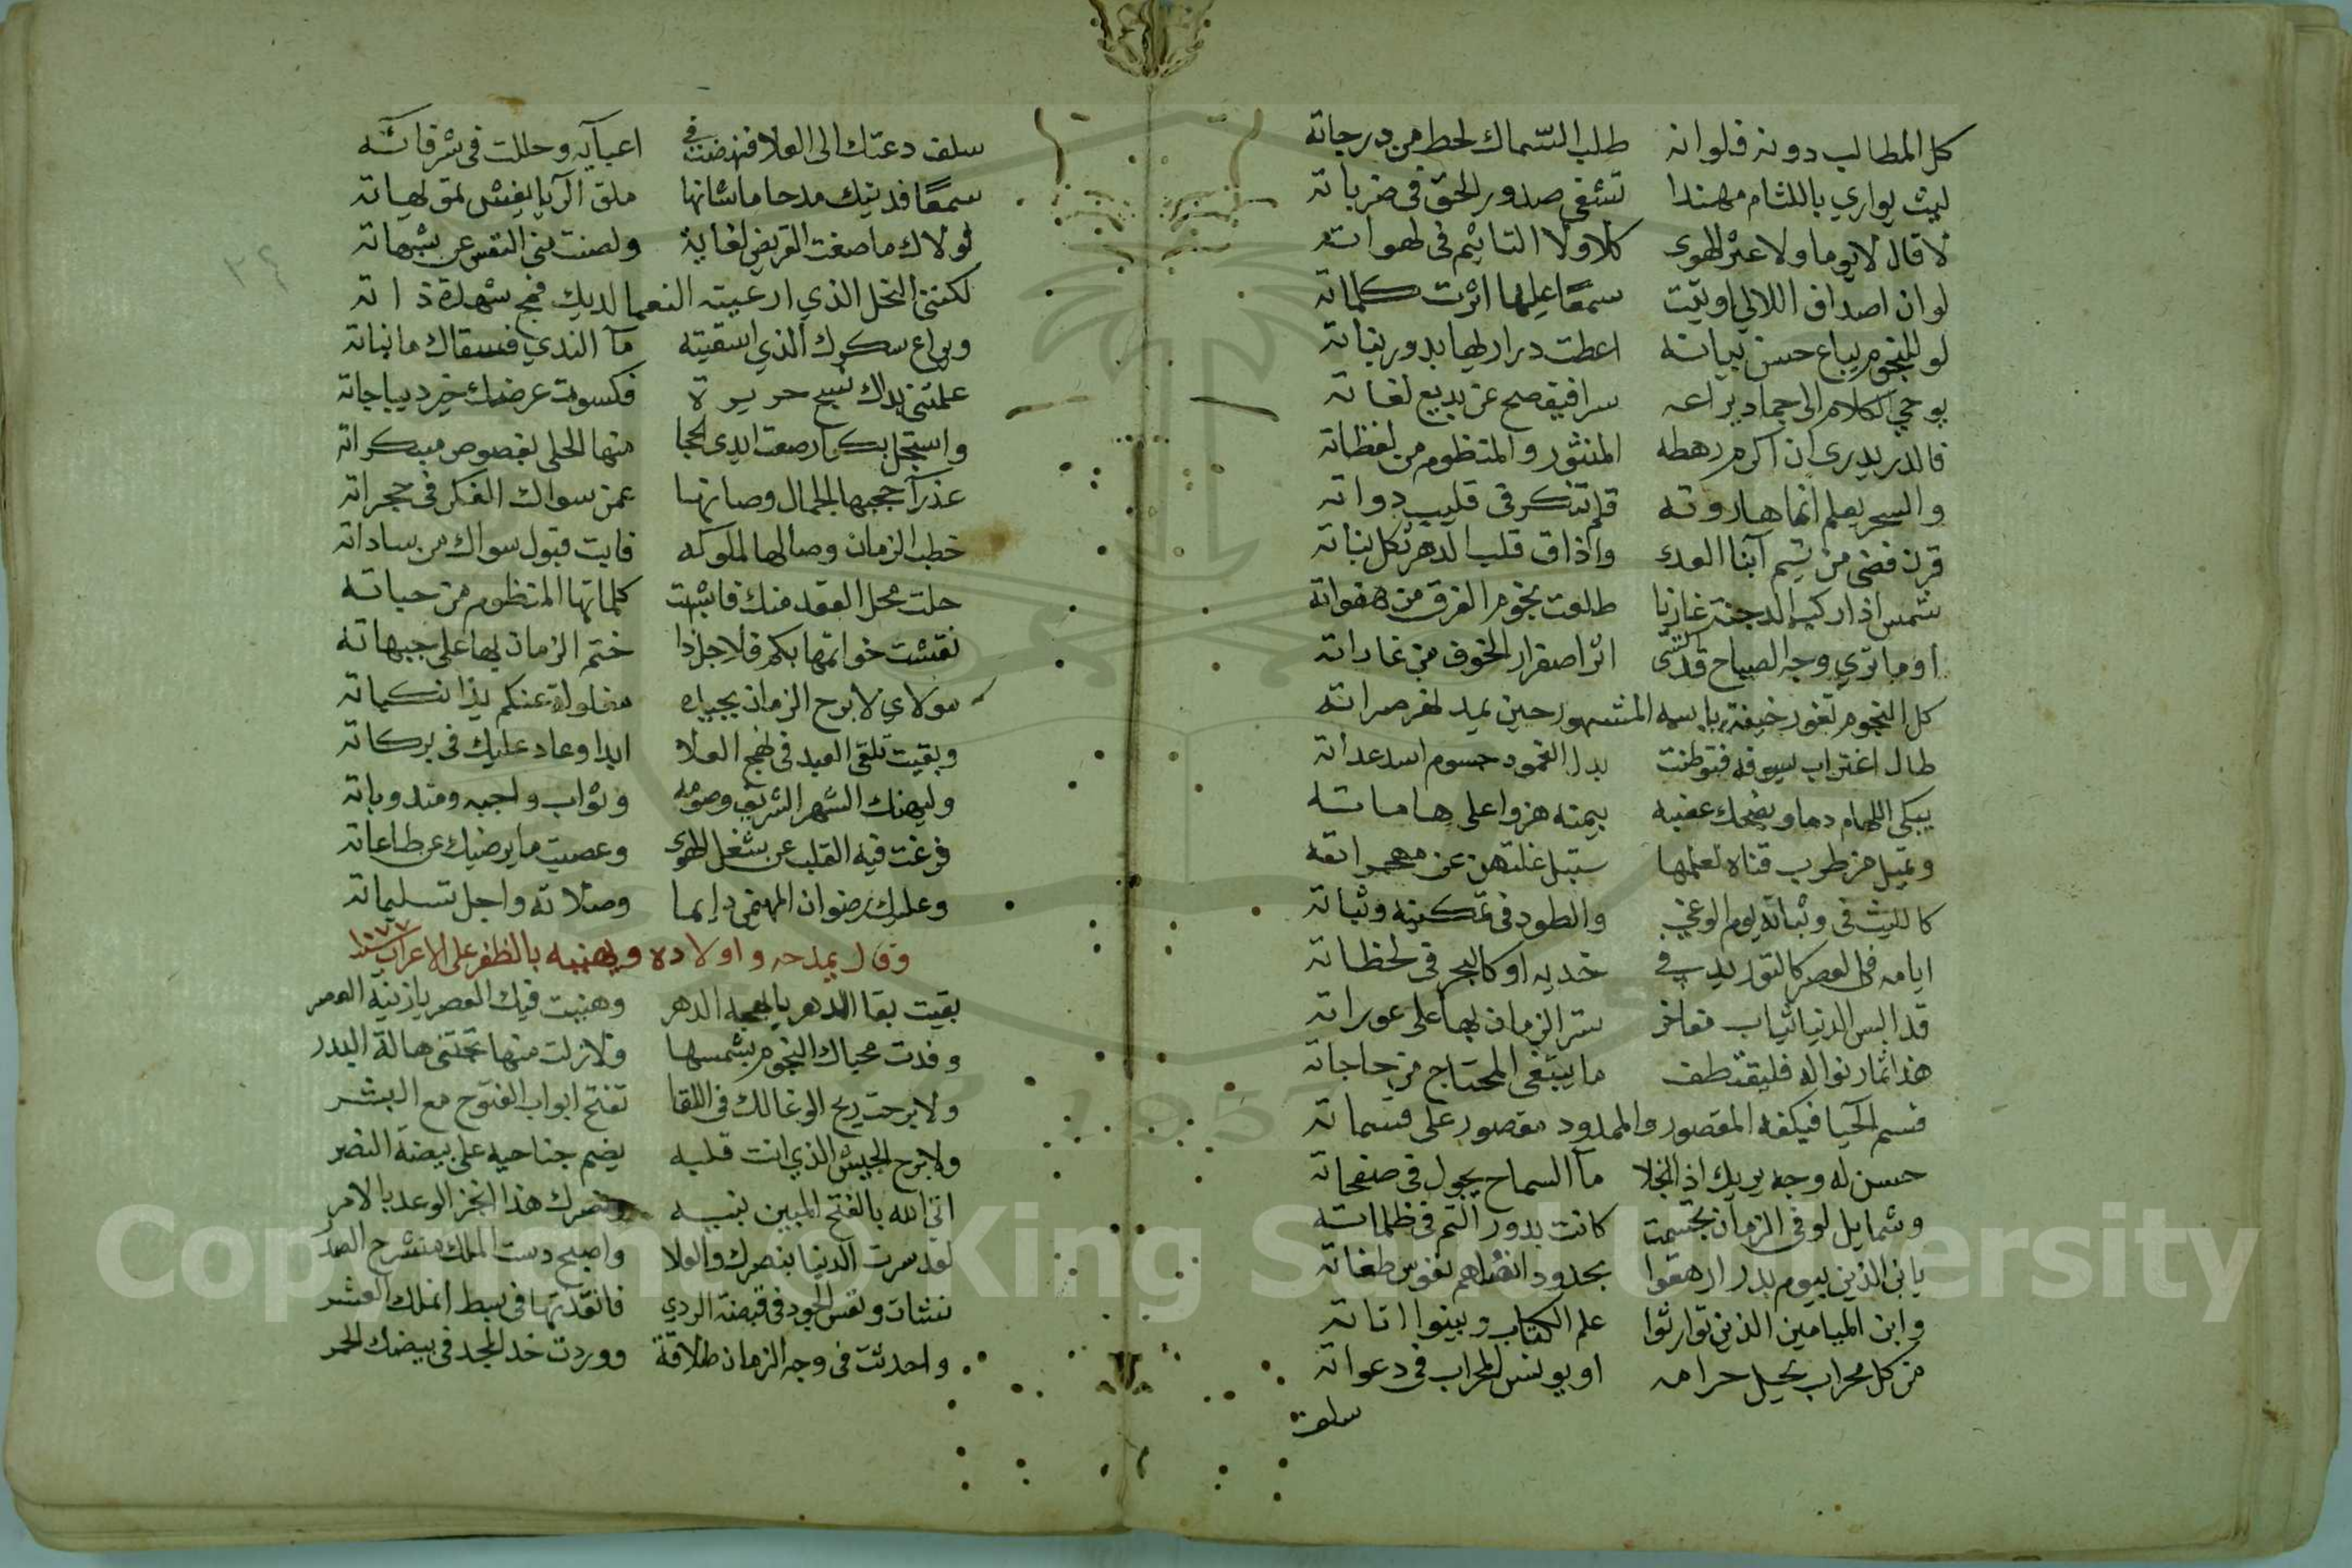 كل المطالب دونه فلوانه طلب السماك لحط من درجاته
ليث يواري باللثام مهندا تشفى صدور الحق في ضرباته
لا قال لا يوما ولا عثر الهوى كلا ولا التاثيم في لهواته
لو ان اصداف اللالي اوتيت سمعا عليها اثرت كلماته
لو للنجوم يباع حسن بيانه اعطت دراريها بدور بناته
يوحي الكلام الى جماد يراعه سرا فيفصح عن بديع لغاته
فالدر يدري ان اكرم رهطه المنثور والمنظوم من لفظاته
والسحر يعلم انما هاروته قلم تنكر في قليب دواته
قرن فضى من يتم آبنا العدى واذاق قلب الدهر ثكل بناته
شمس اذا ركب الدجنة غازيا طلعت نجوم الغرق من هفواته
او ما ترى وجه الصباح قد اكتسى اثر اصفرار الخوف من غاراته
كل النجوم تغور خيفة باسه المشهور حين يمد لهن
طال اغتراب سيوفه فتوطنت بدل الغمود جسوم اسد عداته
يبكي اللهام دما ويضحك عضبه بيمينه هزوا على هاماته
وتميل من طرب قناه لعلمها ستبل غلتهن من مهجاته
كالليث في وثباته يوم الوغى والطود في تمكينه وثباته
ايامه في العصر كالتوريد في خديه او كالسحر في لحظاته
قد البس الدنيا ثياب مفاخر ستر الزمان بها على عوراته
هذا ثمار نواله فليقتطف ما يبتغي المحتاج من حاجاته
قسم الحيا فبكفه المقصور والممدود مقصور على قسماته
حسن له وجه يريك اذ انجلا مآ السماح يجول في صفحاته
وشمايل لو في الزمان تجسمت كانت بدور التم في ظلماته
يا بن الذين بيوم بدر ارهقوا بحدود نفوس طغاته
وابن الميامين الذين توارثوا علم الكتاب وبينوا اياته
من كل محراب يحيل حرامه او يونس المحراب في دعواته
سلف
سلف دعتك الى العلا فنهضت في اعبآيه وحللت في شرفاته
سمعا فديتك مدحا ما شانها ملق الريا بغش تمويهاته
لولاك ما صغت القريض لغاية ولصنت مني النفس عن شبهاته
لكنني النحل الذي ارعيته النعما لديك فمج شهدة ذاته
ويراع سكرك الذي اسقيته مآ الندي فسقاك ما نباته
علمتني يداك نسج حريره فكسوت عرضك خير ديباجاته
واستجل بكرا رصعت ايدي الحجا منها الحلى بفصوص مبتكراته
عذرآ حجبها الجمال وصانها عمن سواك الفكر في حجراته
خطب الزمان وصالها لملوكه فابت قبول سواك من ساداته
حلت محل العقد منك فاشبهت كلماتها المنظوم من حباته
نقشت خواتمها بكم فلاجل ذا ختم الزمان بها على جبهاته
مولاي لا برح الزمان بجيده مغلولة عنكم يدا نكباته
وبقيت تلقى العيد في نهج العلا ابدا وعاد عليك في بركاته
وليهنك الشهر الشريف وصومه وثواب واجبه ومندوباته
فرغت فيه القلب عن شغل الهوى وعصيت ما يرضيك عن طاعاته
وعليك رضوان المهيمن دايما وصلاته واجل تسليماته
وقال يمدحه واولاده ويهنيه بالظفر على الاعراب سنة ١٠٧٧
بقيت بقا الدهر يا بهجة الدهر وهنيت فيك العصر يا زينة العصر
وفدت محياك النجوم بشمسها ولا زلت منها تجتني هالة البدر
ولا برحت ريح الوغا لك في اللقا تفتح ابواب الفتوح مع البشر
ولا برح الجيش الذي انت قلبه يضم جناحيه على بيضة النصر
اتى الله بالفتح المبين بنبه ونصرك هذا انجز الوعد بالامر
لقد سرت الدنيا بنصرك والعلا واصبح دست الملك منشرح الصدر
نشات ونفس الجود في قبضة الردي فانقذتها في بسط انملك العشر
واحدثت في وجه الزمان طلاقة ووردت خد المجد في بيضك الحمر